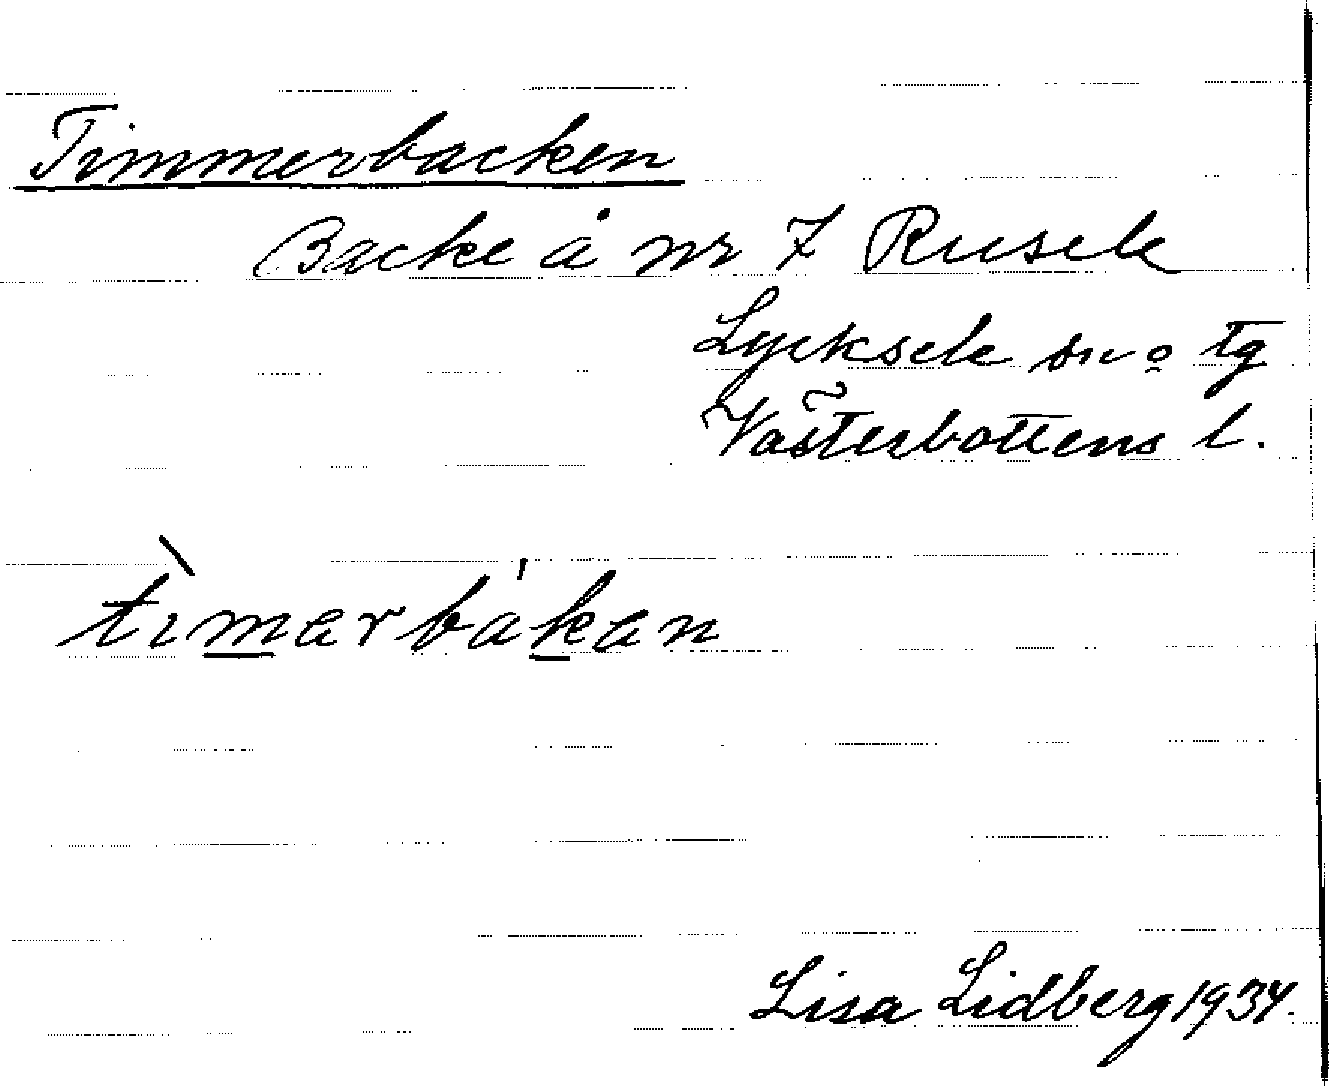 Timmerbacken
Backe å nr 7 Rusele
Lycksele sn o tg
Västerbottens l.
tìmarbákan
Lisa Lidberg 1934.